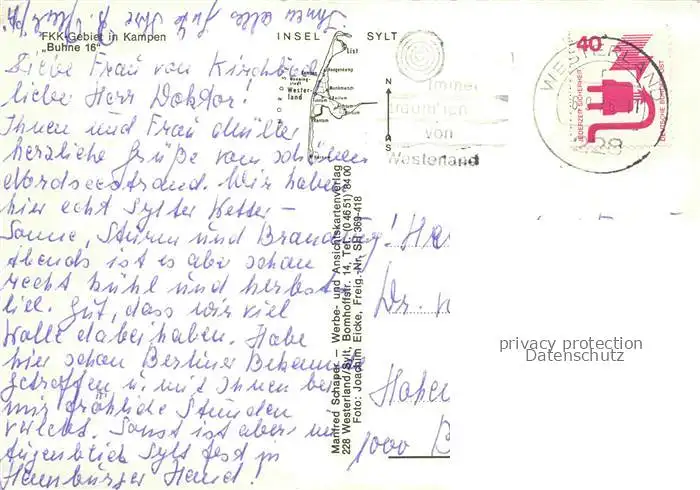 Ihnen alles Gute Ihre
FKK-Gebiet in Kampen
„Buhne 16"
INSEL SYLT
List
Westerland
N
S
Immer
von
Westerland
40
JEDERZEIT SICHERHEIT
DEUTSCHE BUNDESPOST
WESTERLAND
228
Liebe Frau von
lieber Herr Doktor!
Ihnen und Frau Müller
herzliche Grüße vom schönen
Nordseestrand. Wir haben
hier echt Sylter Wetter –
Sonne, Sturm und Brandung!
Abends ist es aber schon
recht kühl und herbst
lich. Gut, dass wir viel
Wolle dabei haben. Habe
hier schon Berliner Bekannte
getroffen u. mit Ihnen bei
mir fröhliche Stunden
verlebt. Sonst ist aber im
Augenblick Sylt fest in
Hamburger Hand!
Manfred Schaper – Werbe- und Ansichtskartenverlag
228 Westerland/Sylt, Bomhoffstr. 14, Tel. (04651) 8400
Foto: Joachim Eicke, Freig. Nr. SH 369-418
Dr.
1000 B
privacy protection
Datenschutz